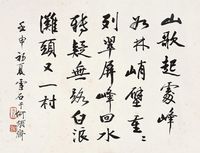 山歌起處峰
如林峭壁重々
列翠屏峰回水
轉疑無路白浪
灘頭又一村
壬申初夏